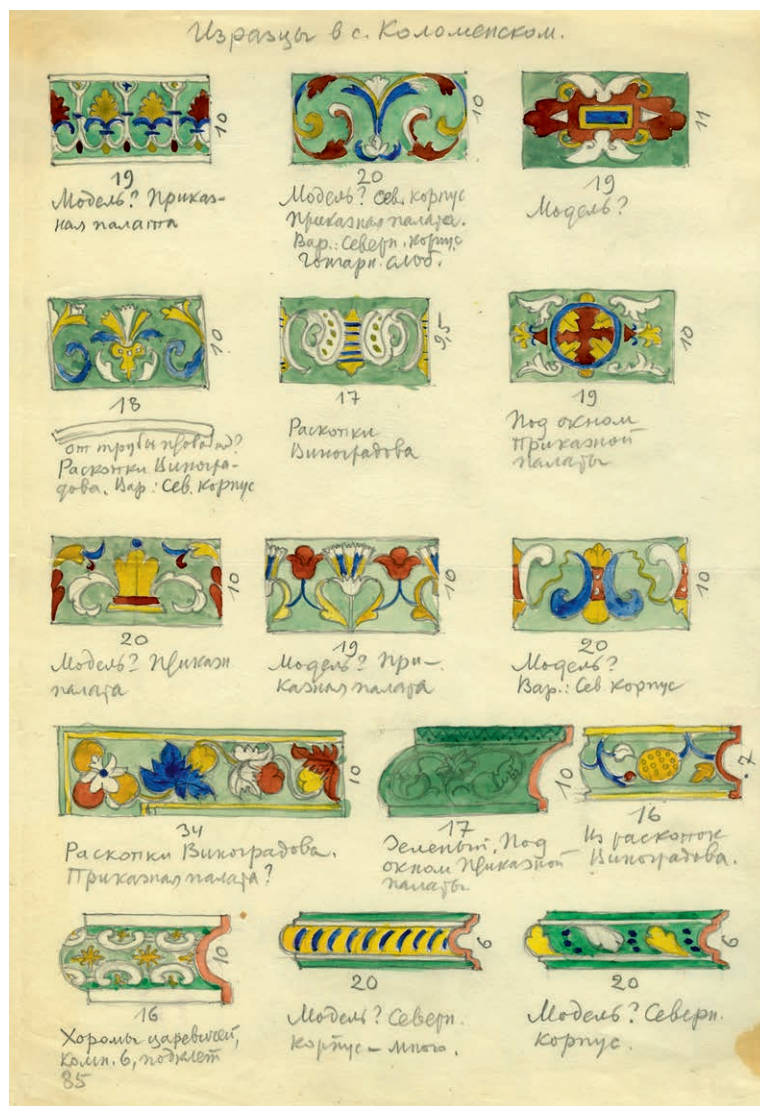 Изразцы в с. Коломенском.
10
19
Модель? Приказ-
ная палата
10
20
Модель? Сев. корпус
Приказная палата.
Вар.: Северн. корпус
Гончарн. слоб.
11
19
Модель?
10
18
от трубы
Раскопки Виногра-
дова. Вар.: Сев. корпус
9,5
17
Раскопки
Виноградова
10
19
Под окном
Приказной
палаты
10
20
Модель? Приказн
палата
10
19
Модель? При-
казная палата
10
20
Модель?
Вар.: Сев корпус
10
34
Раскопки Виноградова.
Приказная палата?
10
17
Зеленый. Под
окном Приказной
палаты.
7
16
Из раскопок
Виноградова.
10
16
Хоромы царевичей,
комн. 6, подклет
85
6
20
Модель? Северн.
корпус – много.
6
20
Модель? Северн.
корпус.